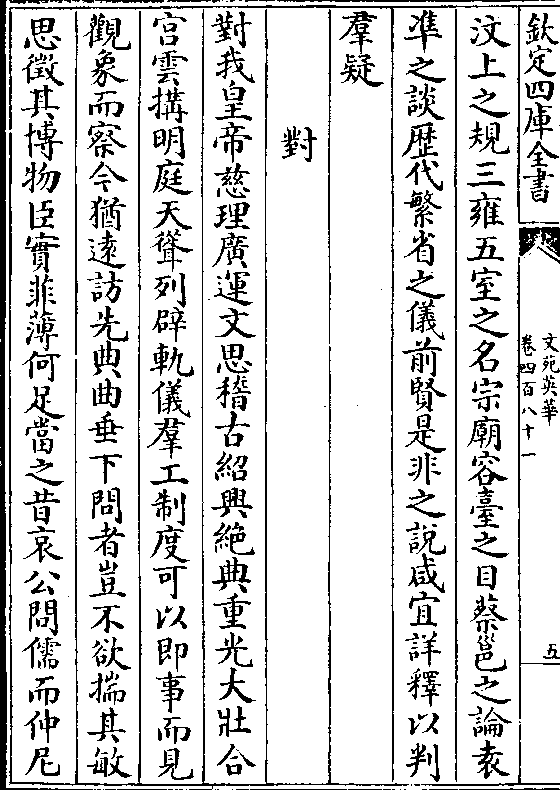 欽定四庫全書
文苑英華
卷四百八十一
五
汶上之規三雍五室之名宗廟容臺之目蔡邕之論袁
準之談歴代繁省之儀前賢是非之說咸宜詳釋以判
羣疑
對
對我皇帝慈理廣運文思稽古紹興絶典重光大壯合
宫雲搆明庭天聳列辟軌儀羣工制度可以即事而見
觀象而察今猶逺訪先典曲垂下問者豈不欲揣其敏
思徵其博物臣實菲薄何足當之昔哀公問儒而仲尼